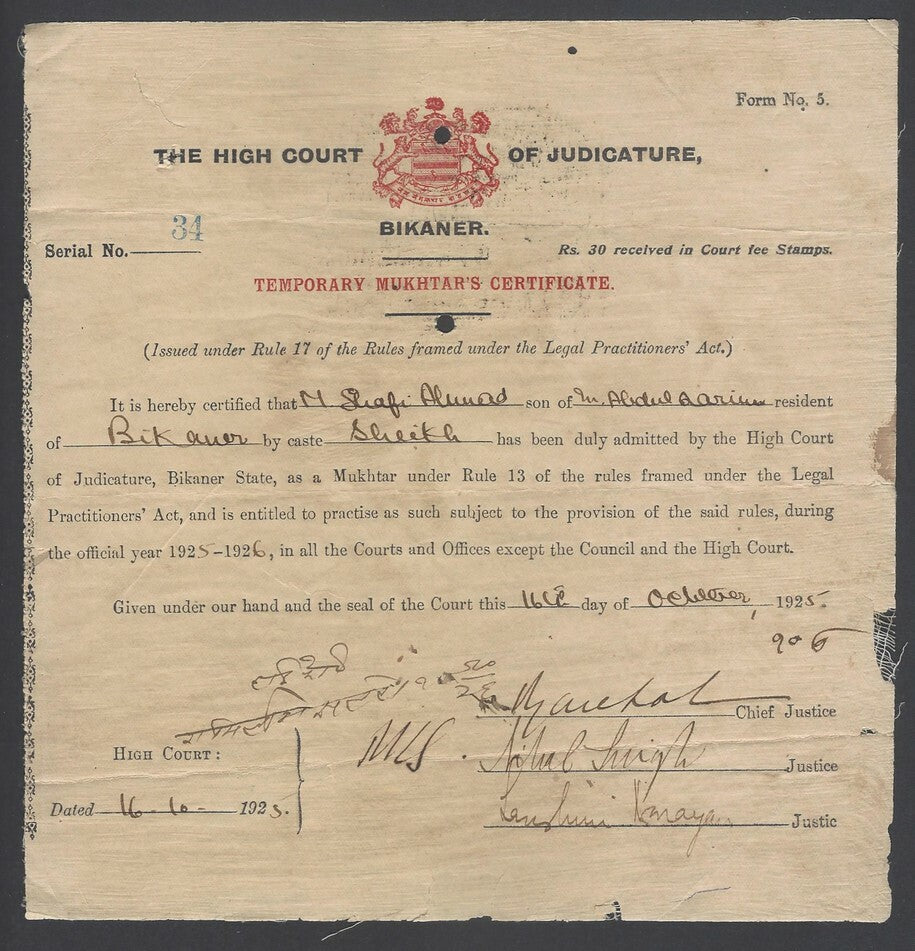 Form No. 5.
THE HIGH COURT OF JUDICATURE,
BIKANER.
Serial No. 34
Rs. 30 received in Court fee Stamps.
TEMPORARY MUKHTAR'S CERTIFICATE.
(Issued under Rule 17 of the Rules framed under the Legal Practitioners' Act.)
It is hereby certified that M Shafi Ahmad son of M. Abdul resident
of Bikaner by caste Sheikh has been duly admitted by the High Court
of Judicature, Bikaner State, as a Mukhtar under Rule 13 of the rules framed under the Legal
Practitioners' Act, and is entitled to practise as such subject to the provision of the said rules, during
the official year 1925-1926, in all the Courts and Offices except the Council and the High Court.
Given under our hand and the seal of the Court this 16th day of October, 1925.
906
Chief Justice
HIGH COURT:
Nihal Singh Justice
Dated 16-10- 1925.
Narayan Justic